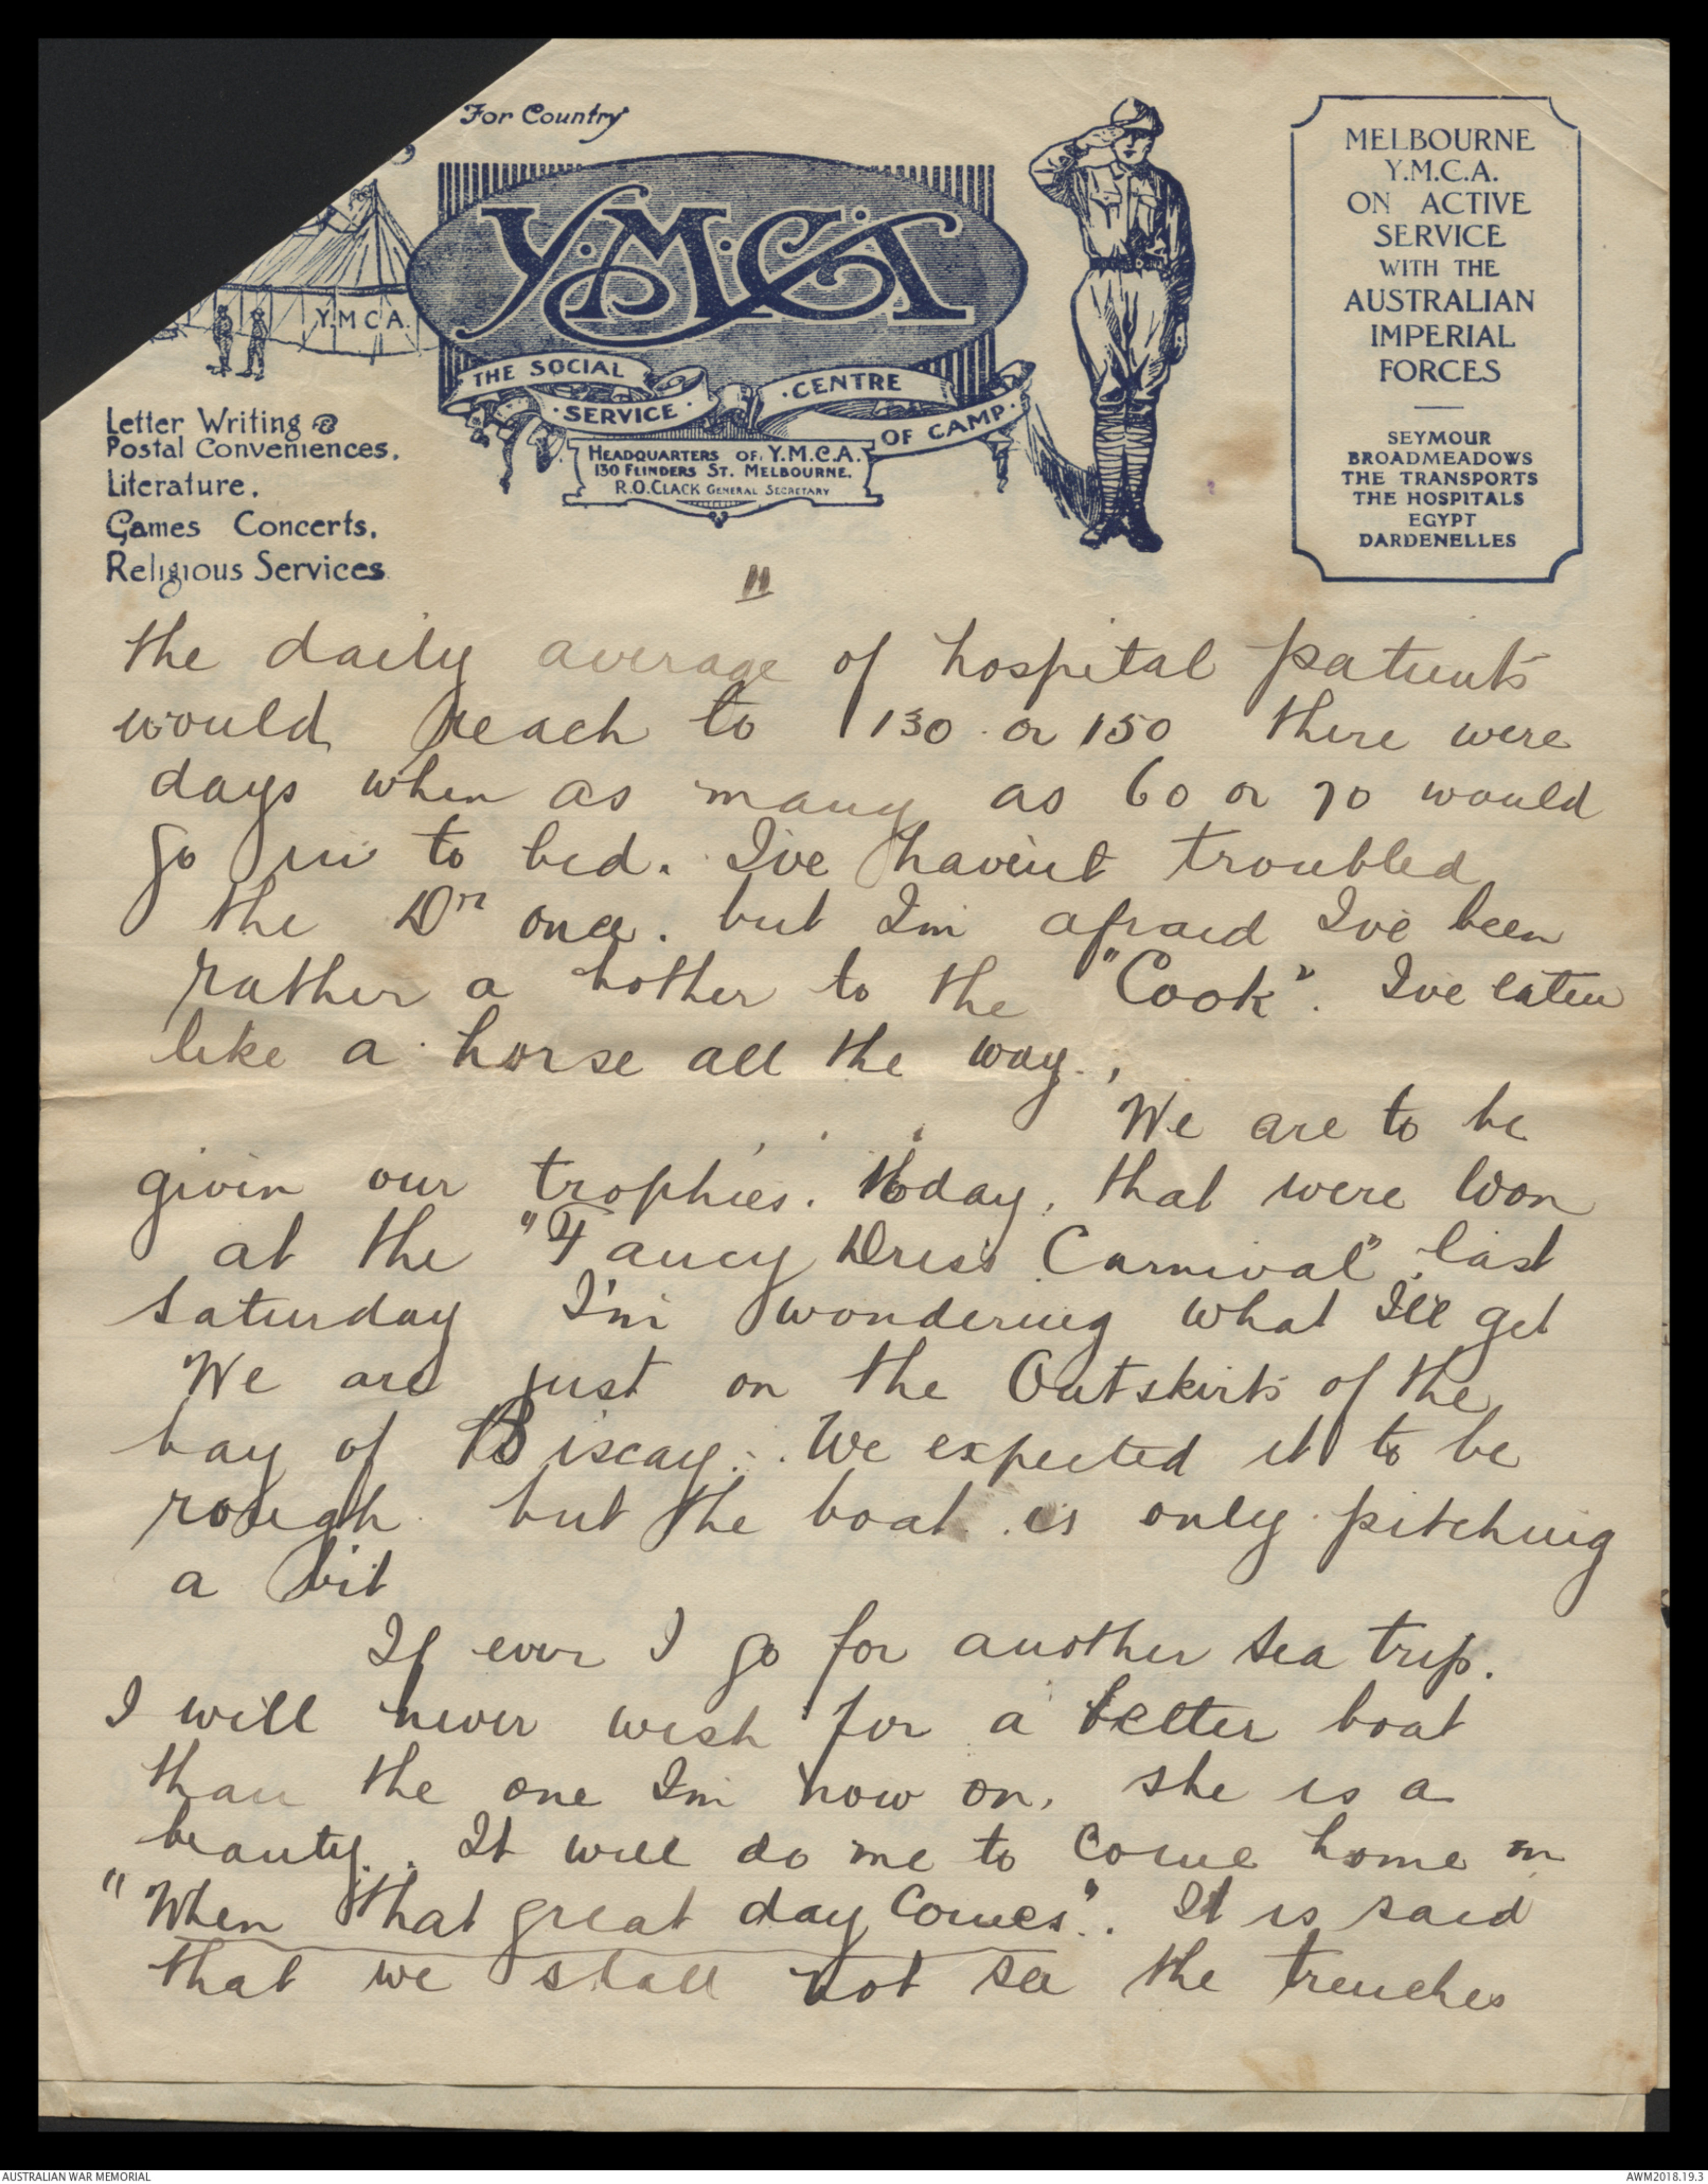 For Country
Y.M.C.A.
Y.M.C.A.
THE SOCIAL
SERVICE
CENTRE
OF CAMP
HEADQUARTERS OF Y.M.C.A.
130 FLINDERS ST. MELBOURNE.
R.O.CLACK GENERAL SECRETARY
Letter Writing &
Postal Conveniences.
Literature.
Games Concerts.
Religious Services
MELBOURNE
Y.M.C.A.
ON ACTIVE
SERVICE
WITH THE
AUSTRALIAN
IMPERIAL
FORCES
SEYMOUR
BROADMEADOWS
THE TRANSPORTS
THE HOSPITALS
EGYPT
DARDENELLES
11
the daily average of hospital patients
would reach to 130 or 150 there were
days when as many as 60 or 70 would
go in to bed. I've havent troubled
the Dr once. but I'm afraid I've been
rather a bother to the "Cook". I've eaten
like a horse all the way.
We are to be
given our trophies. today, that were won
at the "Fancy Dress Carnival" last
Saturday I'm wondering what I'll get
We are just on the Outskirts of the
bay of Biscay. We expected it to be
rough but the boat is only pitching
a bit
If ever I go for another sea trip.
I will never wish for a better boat
than the one I'm now on. she is a
beauty. It will do me to come home in
"When that great day comes". It is said
that we shall not see the trenches
AUSTRALIAN WAR MEMORIAL
AWM2018.19.3